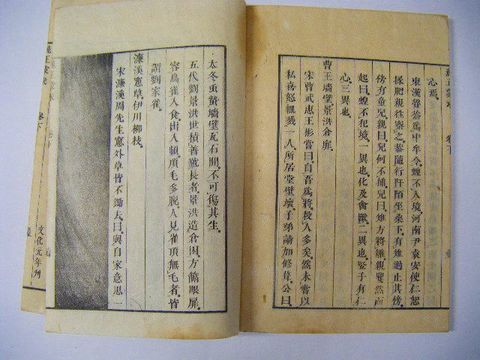 心焉。
東漢魯恭爲中牟令。蝗不入境。河南尹袁安使仁恕
掾肥親往察之。恭隨行阡陌。坐桑下。有雉過止其傍。
傍有童兒。親曰。兒何不捕。兒曰。雉方將雛。親瞿然而
起曰。蝗不犯境。一異也。化及禽獸。二異也。竪子有仁
心三異也。
曹王墻壁景洪倉
宋曹武惠王彬嘗曰。自吾爲將。殺人多矣。然未嘗以
私喜怒輒戮一人。所居堂壁壞。子弟請加修葺。公曰。
墻壁瓦石間。不可傷其生。
五代劉景洪世積善。號長者。景洪造倉。因方
容鳥雀入食。由入頻。頂毛多脫。人見雀頂無毛者。皆
謂劉家雀。
濂溪窓草伊川柳枝
宋濂溪周先生窓外草皆不鋤去。曰。與自家意思一
卷下
文化元年